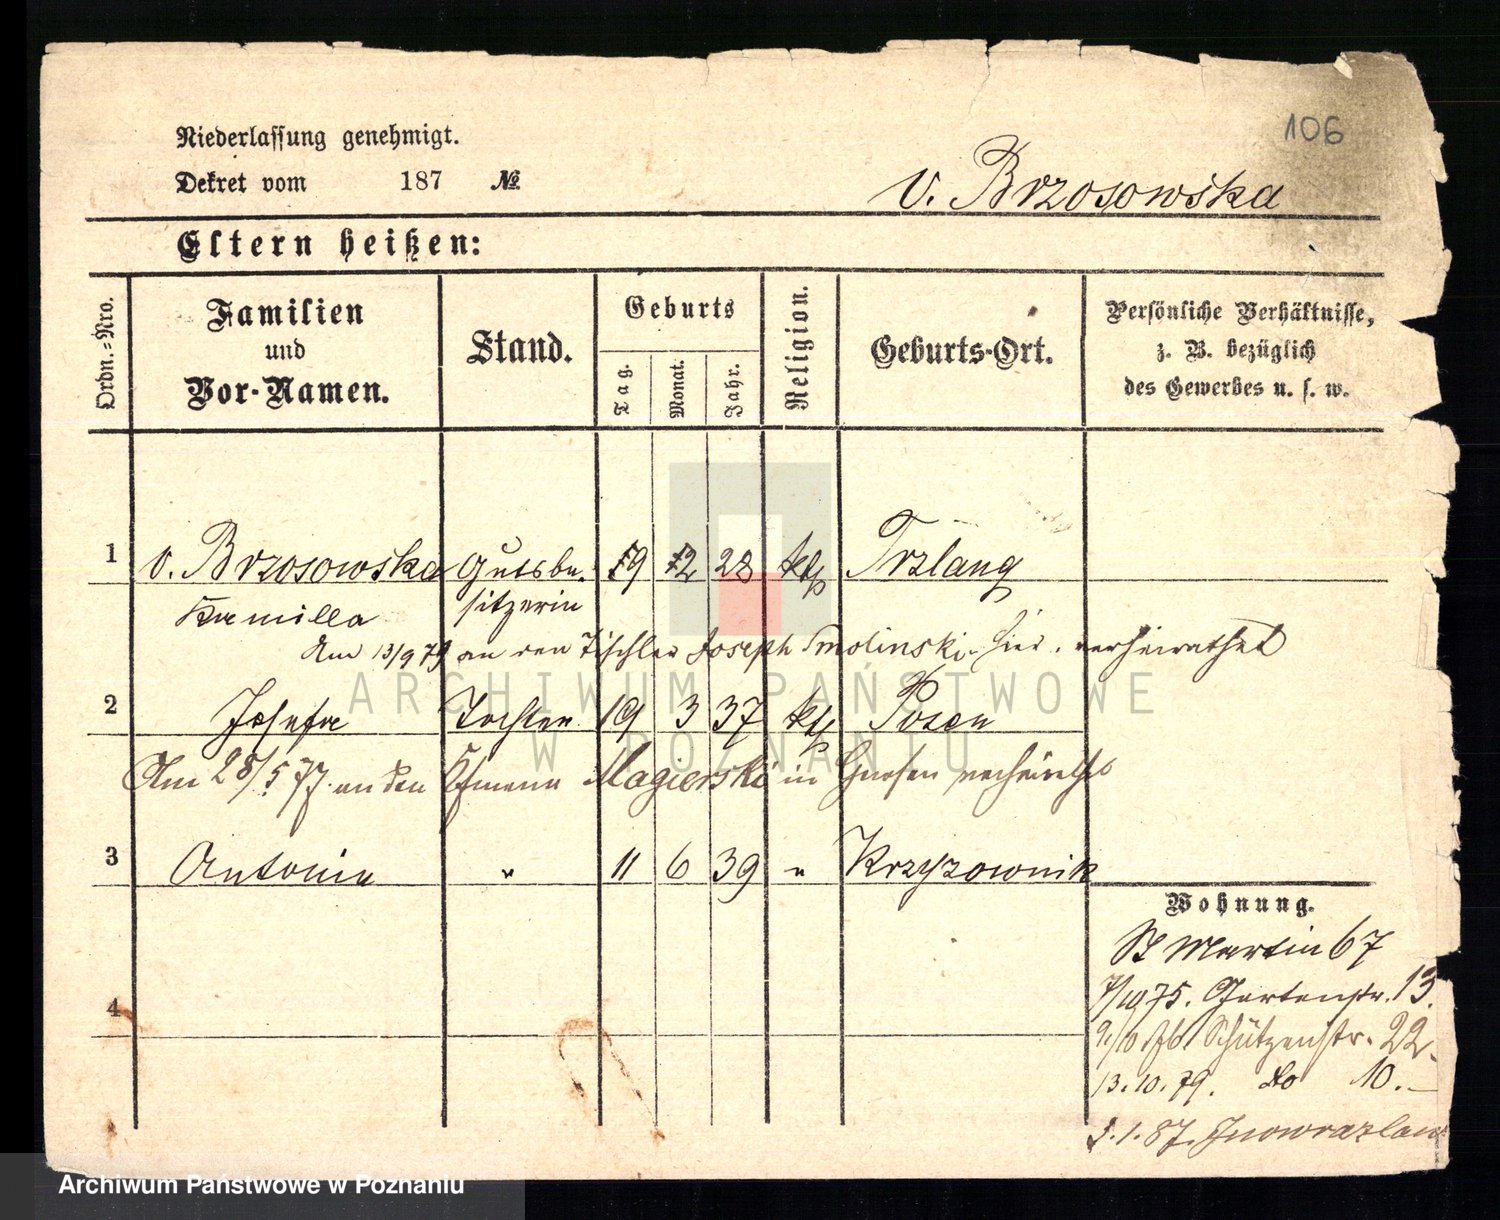 106
Niederlassung genehmigt.
Dekret vom 187 №
v. Brzosowska
Eltern heißen:
Ordn.-Nro.
Familien und Vor-Namen.
Stand.
Geburts
Tag. Monat. Jahr.
Religion.
Geburts-Ort.
Persönliche Verhältnisse,
z. B. bezüglich
des Gewerbes u. s. w.
1 v. Brzosowska Gutsbe- 19 12 28 kth Trzlong
Kamilla sitzerin
Am 13/9 79 an den Tischler Joseph Smolinski hier verheirathet
2 Josefa Tochter 19 3 37 kth Posen
Am 28/5 77. an den Kfmann Magierski in Gnesen verheirathet
3 Antonia " 11 6 39 " Krzyzownik
Wohnung.
St Martin 67
7/10 75. Gartenstr. 13.
9/10 76 Schützenstr. 22.
13.10.79. do 10.
4
5.1.87. Inowrazlaw
ARCHIWUM PAŃSTWOWE
W POZNANIU
Archiwum Państwowe w Poznaniu